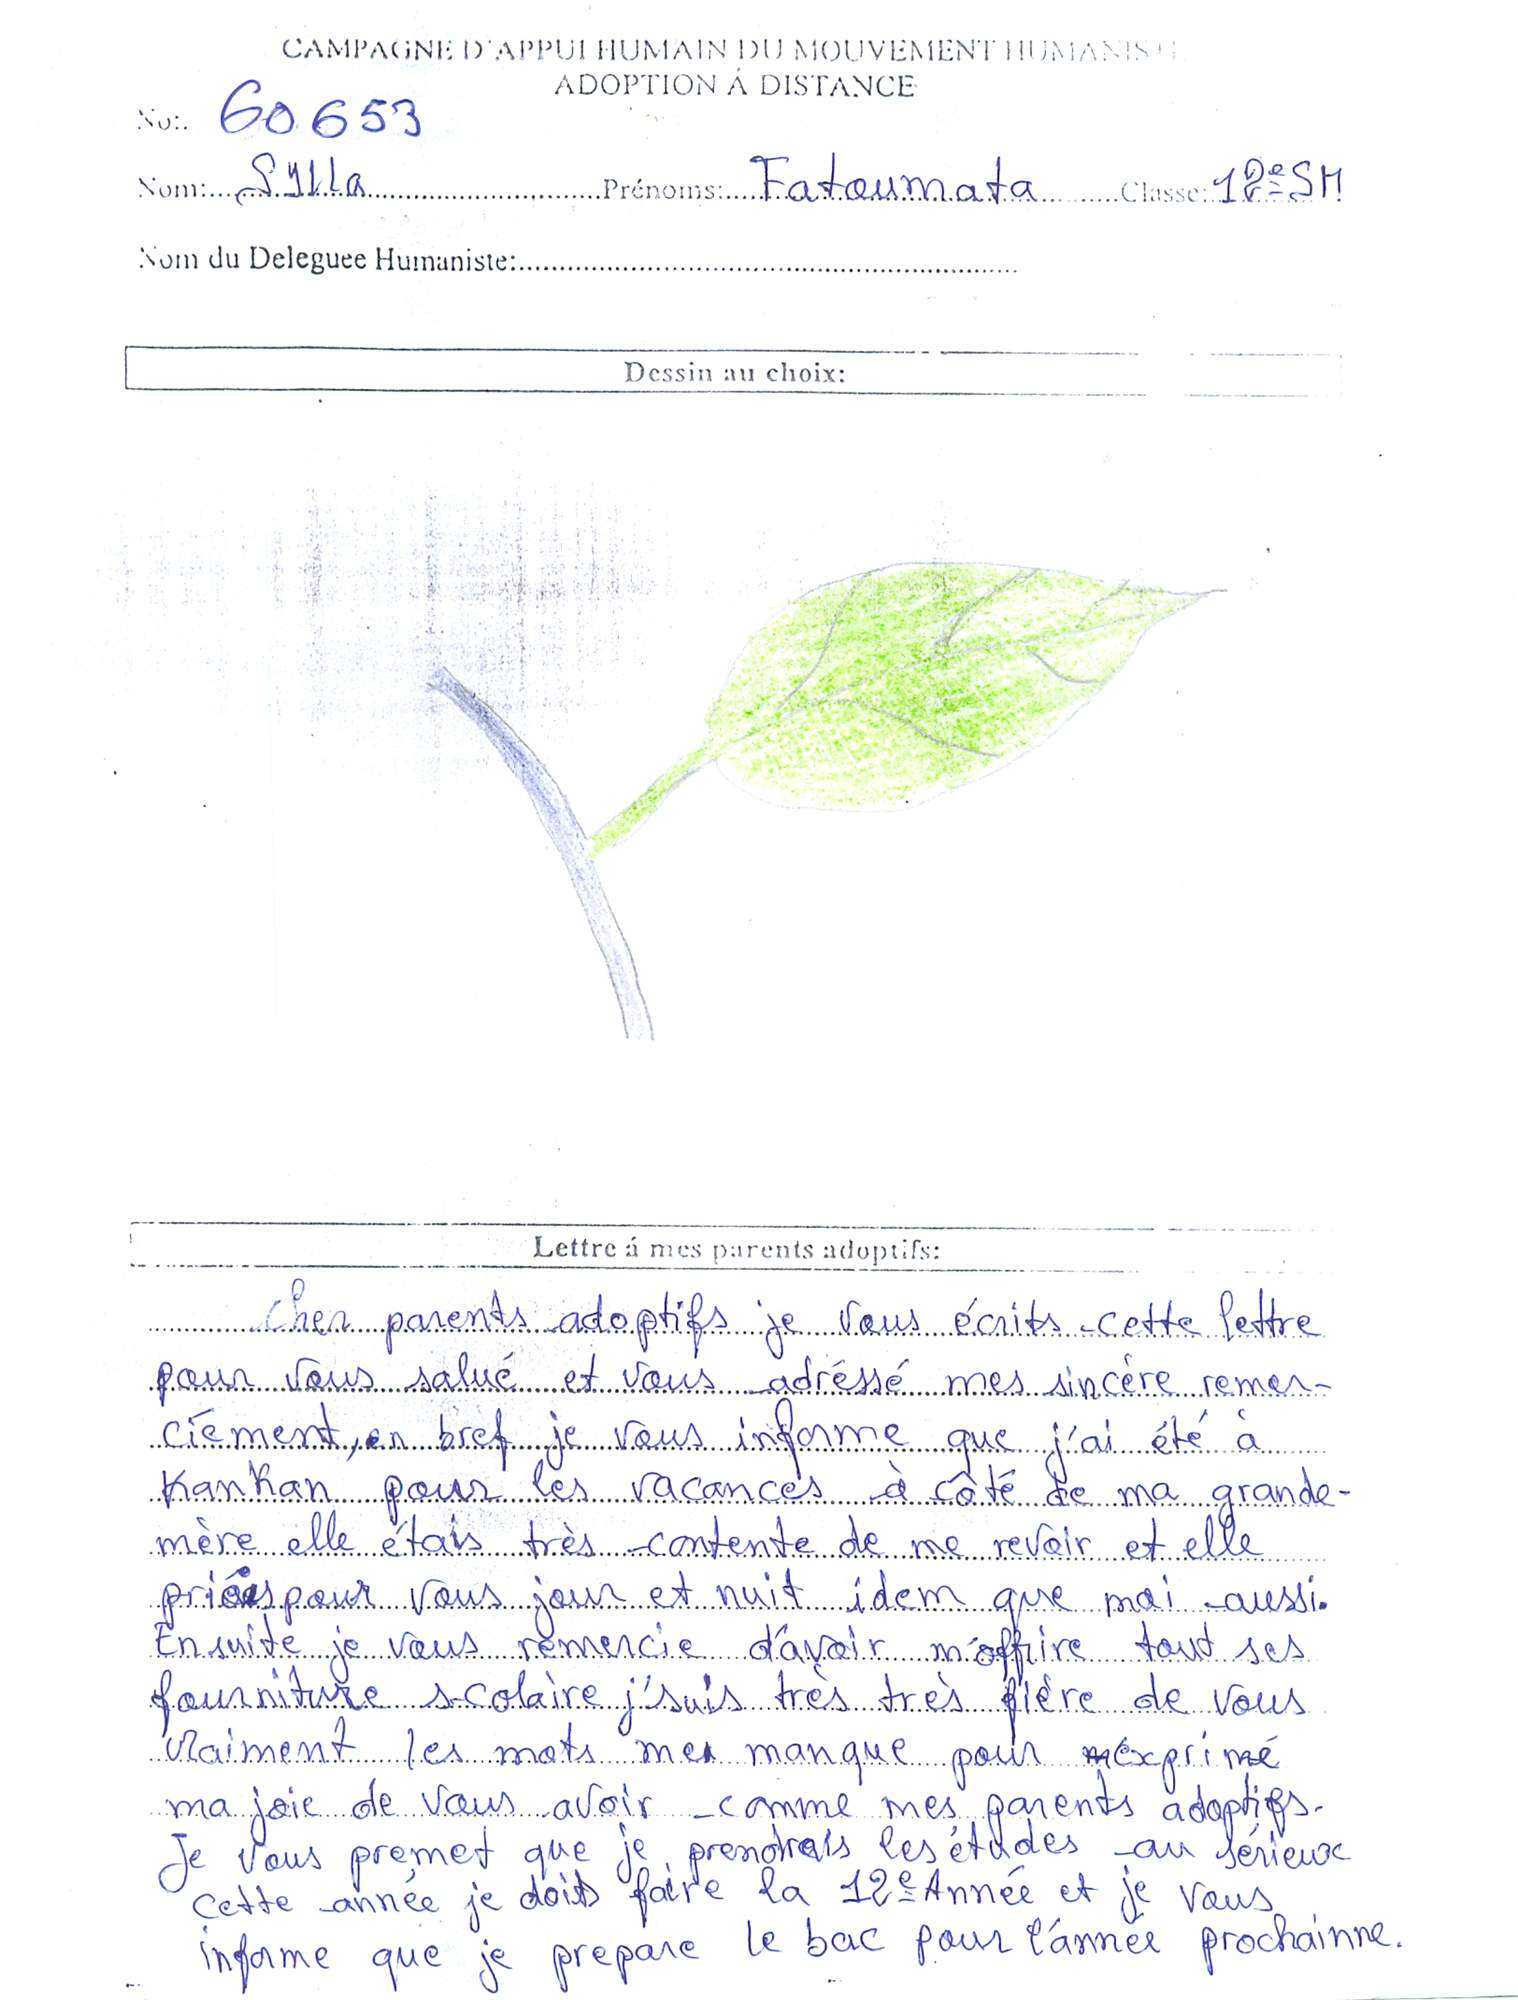 CAMPAGNE D'APPUI HUMAIN DU MOUVEMENT HUMANISTE
ADOPTION Á DISTANCE
No:. 60653
Nom: Sylla Prénoms: Fatoumata Classe: 12e SM
Nom du Deleguee Humaniste:
Dessin au choix:
Lettre á mes parents adoptifs:
Cher parents adoptifs je vous écrits cette lettre
pour vous salué et vous adréssé mes sincère remer-
ciement, en bref je vous informe que j'ai été à
Kankan pour les vacances à côté de ma grande-
mère elle étais très contente de me revoir et elle
pour vous jour et nuit idem que moi aussi.
Ensuite je vous remercie d'avoir m'offrire tout ses
fourniture scolaire j'suis très très fière de vous
vraiment les mots me manque pour exprimé
ma joie de vous avoir comme mes parents adoptifs.
Je vous premet que je prendrais les études au sérieux
cette année je doit faire la 12e Année et je vous
informe que je prepare le bac pour l'année prochainne.